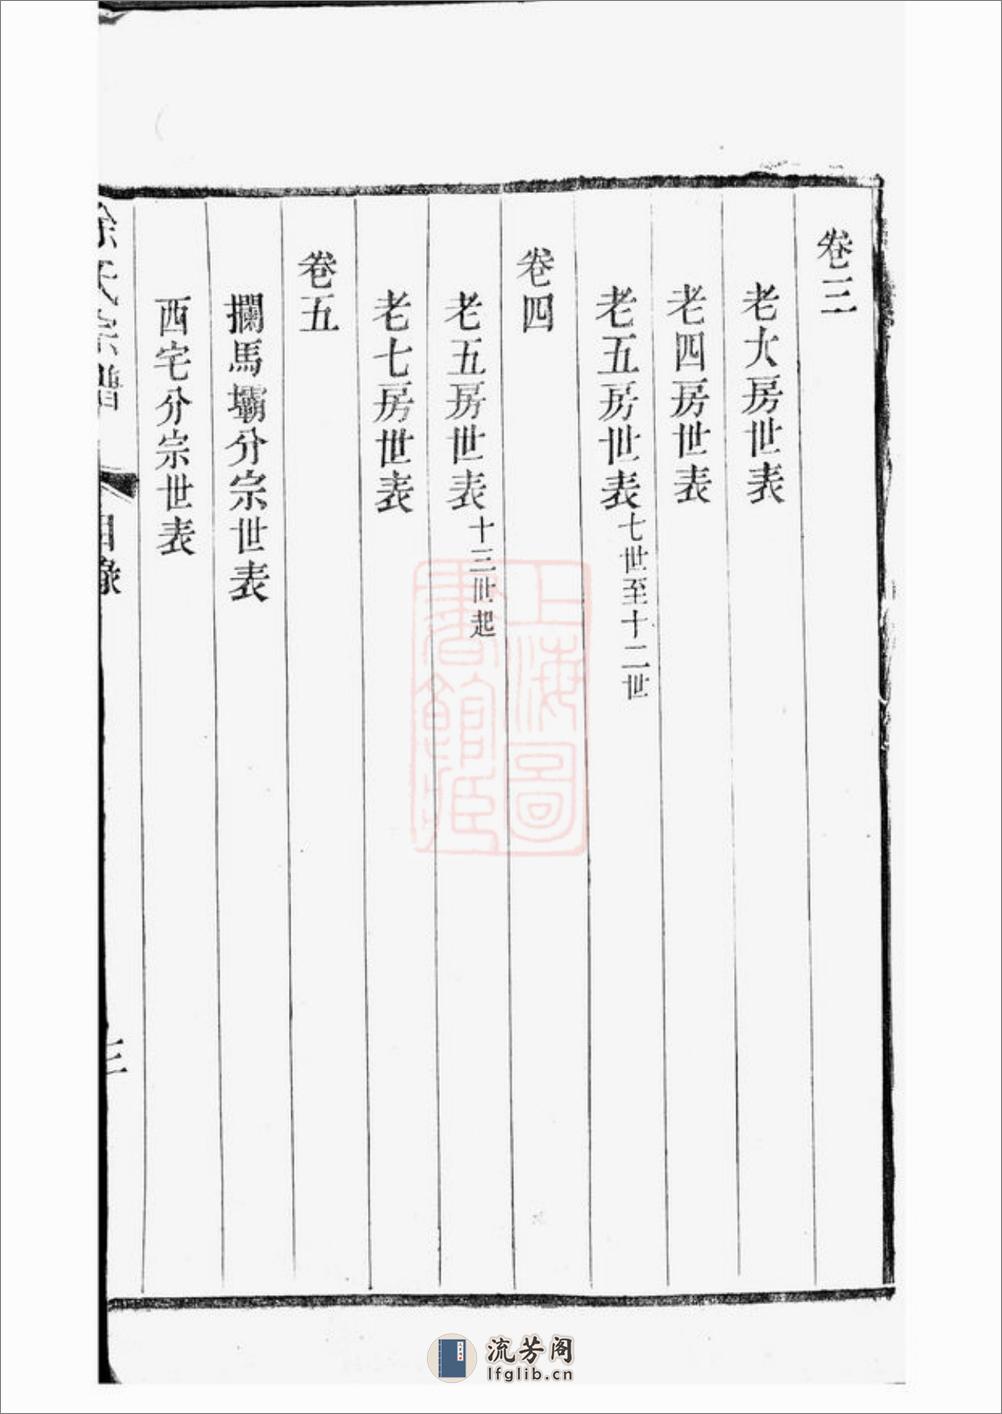 卷三
老大房世表
老四房世表
老五房世表七世至十二世
卷四
老五房世表十三世起
老七房世表
卷五
攔馬壩分宗世表
西宅分宗世表
氏宗譜
目錄
三
上海圖
書館藏
流芳阁
lfglib.cn